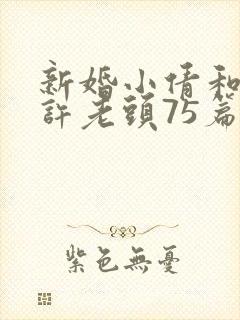 新婚小倩和
許老頭75篇
紫色無憂